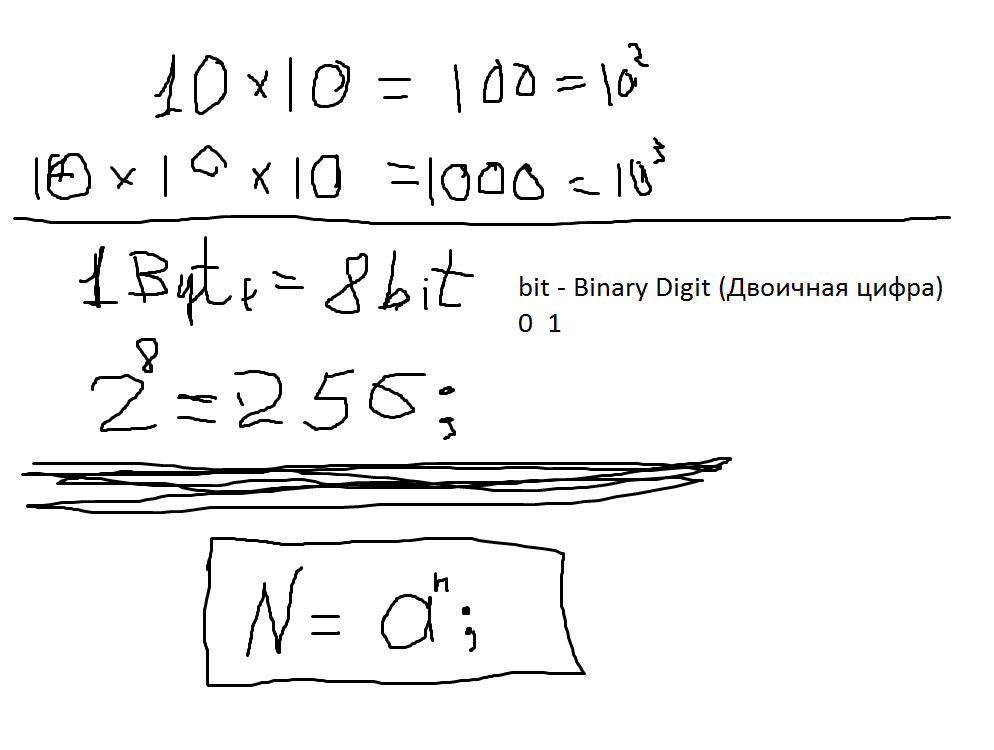 10 × 10 = 100 = 10²
10 × 10 × 10 = 1000 = 10³
1 Byte = 8 bit
bit - Binary Digit (Двоичная цифра)
0 1
2⁸ = 256;
N = aⁿ;